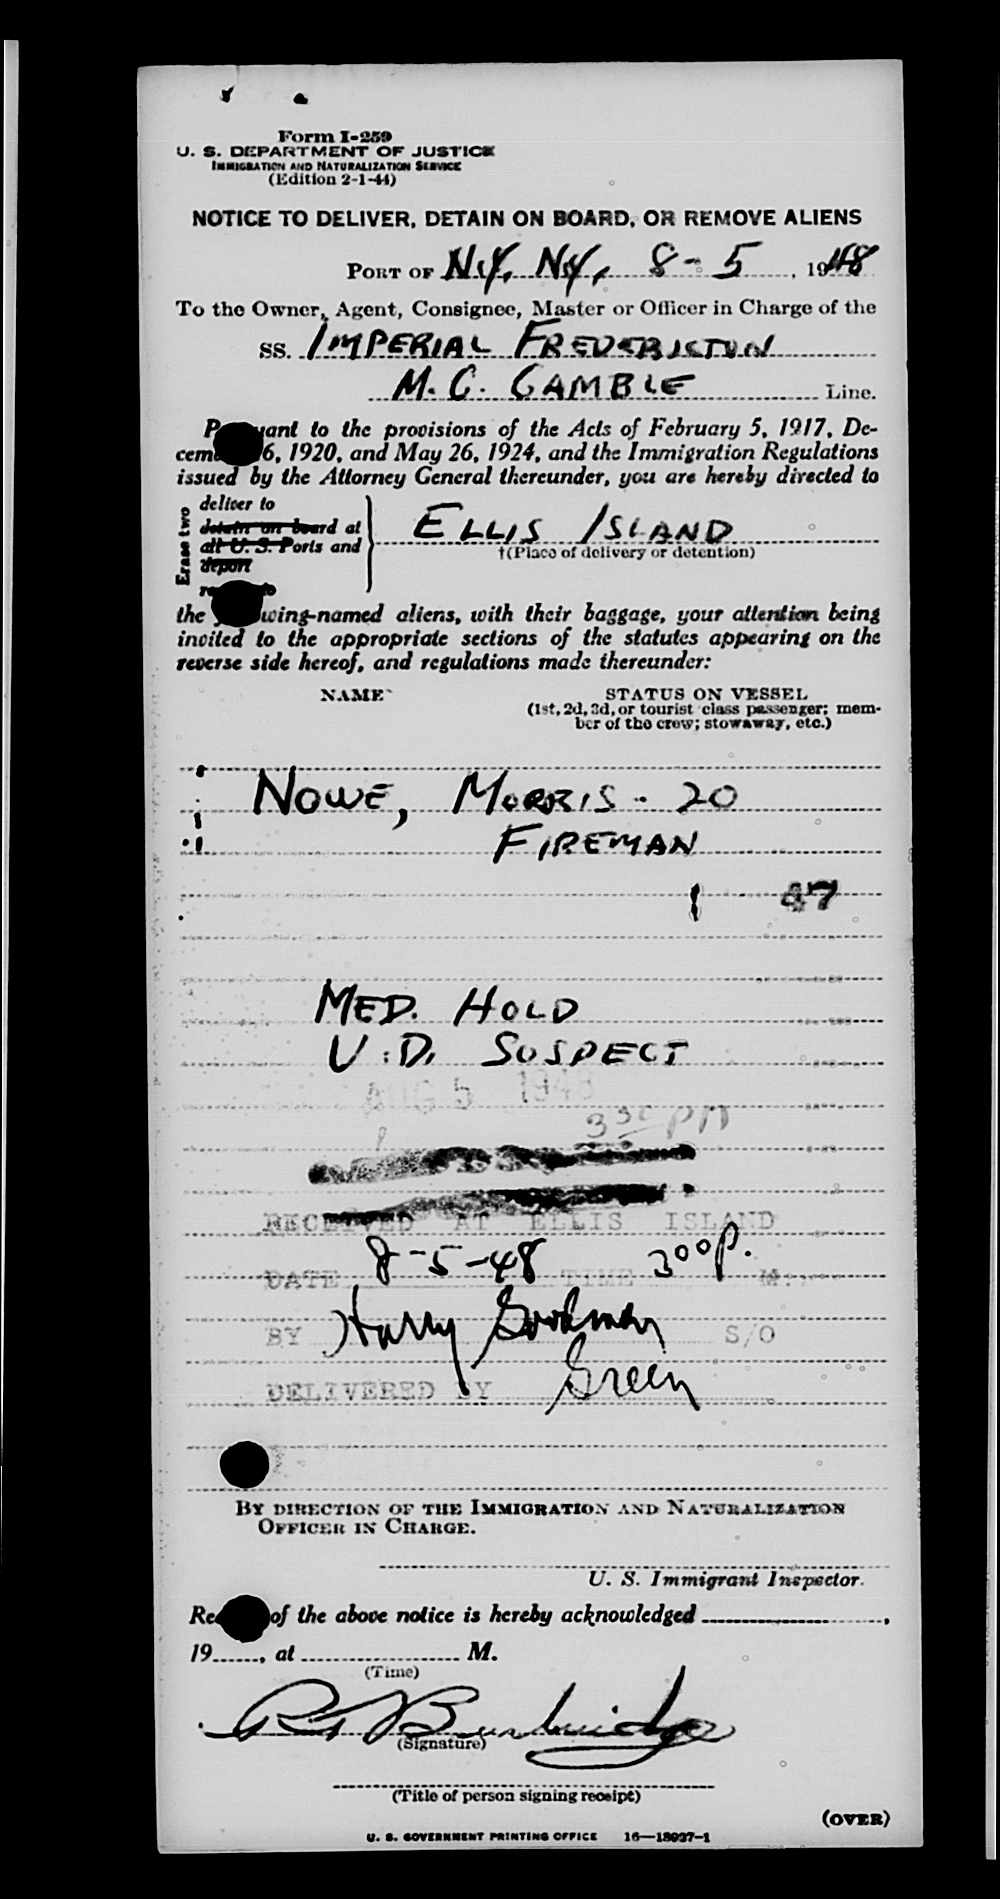 Form I-259
U. S. DEPARTMENT OF JUSTICE
IMMIGRATION AND NATURALIZATION SERVICE
(Edition 2-1-44)
NOTICE TO DELIVER, DETAIN ON BOARD, OR REMOVE ALIENS
PORT OF N.Y. N.Y., 8-5, 1948
To the Owner, Agent, Consignee, Master or Officer in Charge of the
SS. IMPERIAL FREDERICTON
M. C. GAMBLE Line.
P uant to the provisions of the Acts of February 5, 1917, De-
cem 6, 1920, and May 26, 1924, and the Immigration Regulations
issued by the Attorney General thereunder, you are hereby directed to
Erase two
deliver to
detain on board at
all U. S. Ports and
deport
ELLIS ISLAND
†(Place of delivery or detention)
the wing-named aliens, with their baggage, your attention being
invited to the appropriate sections of the statutes appearing on the
reverse side hereof, and regulations made thereunder:
NAME STATUS ON VESSEL
(1st, 2d, 3d, or tourist class passenger; mem-
ber of the crew; stowaway, etc.)
NOWE, MORRIS - 20
FIREMAN
1 47
MED. HOLD
V.D. SUSPECT
AUG 5 1948
3 30 PM
RECEIVED AT ELLIS ISLAND
DATE 8-5-48 TIME 3 00 P. M.
BY Harry Goodman S/O
DELIVERED BY Green
BY DIRECTION OF THE IMMIGRATION AND NATURALIZATION
OFFICER IN CHARGE.
U. S. Immigrant Inspector.
Re of the above notice is hereby acknowledged ,
19 , at M.
(Time)
(Signature)
(Title of person signing receipt)
(OVER)
U. S. GOVERNMENT PRINTING OFFICE 16—18937-1